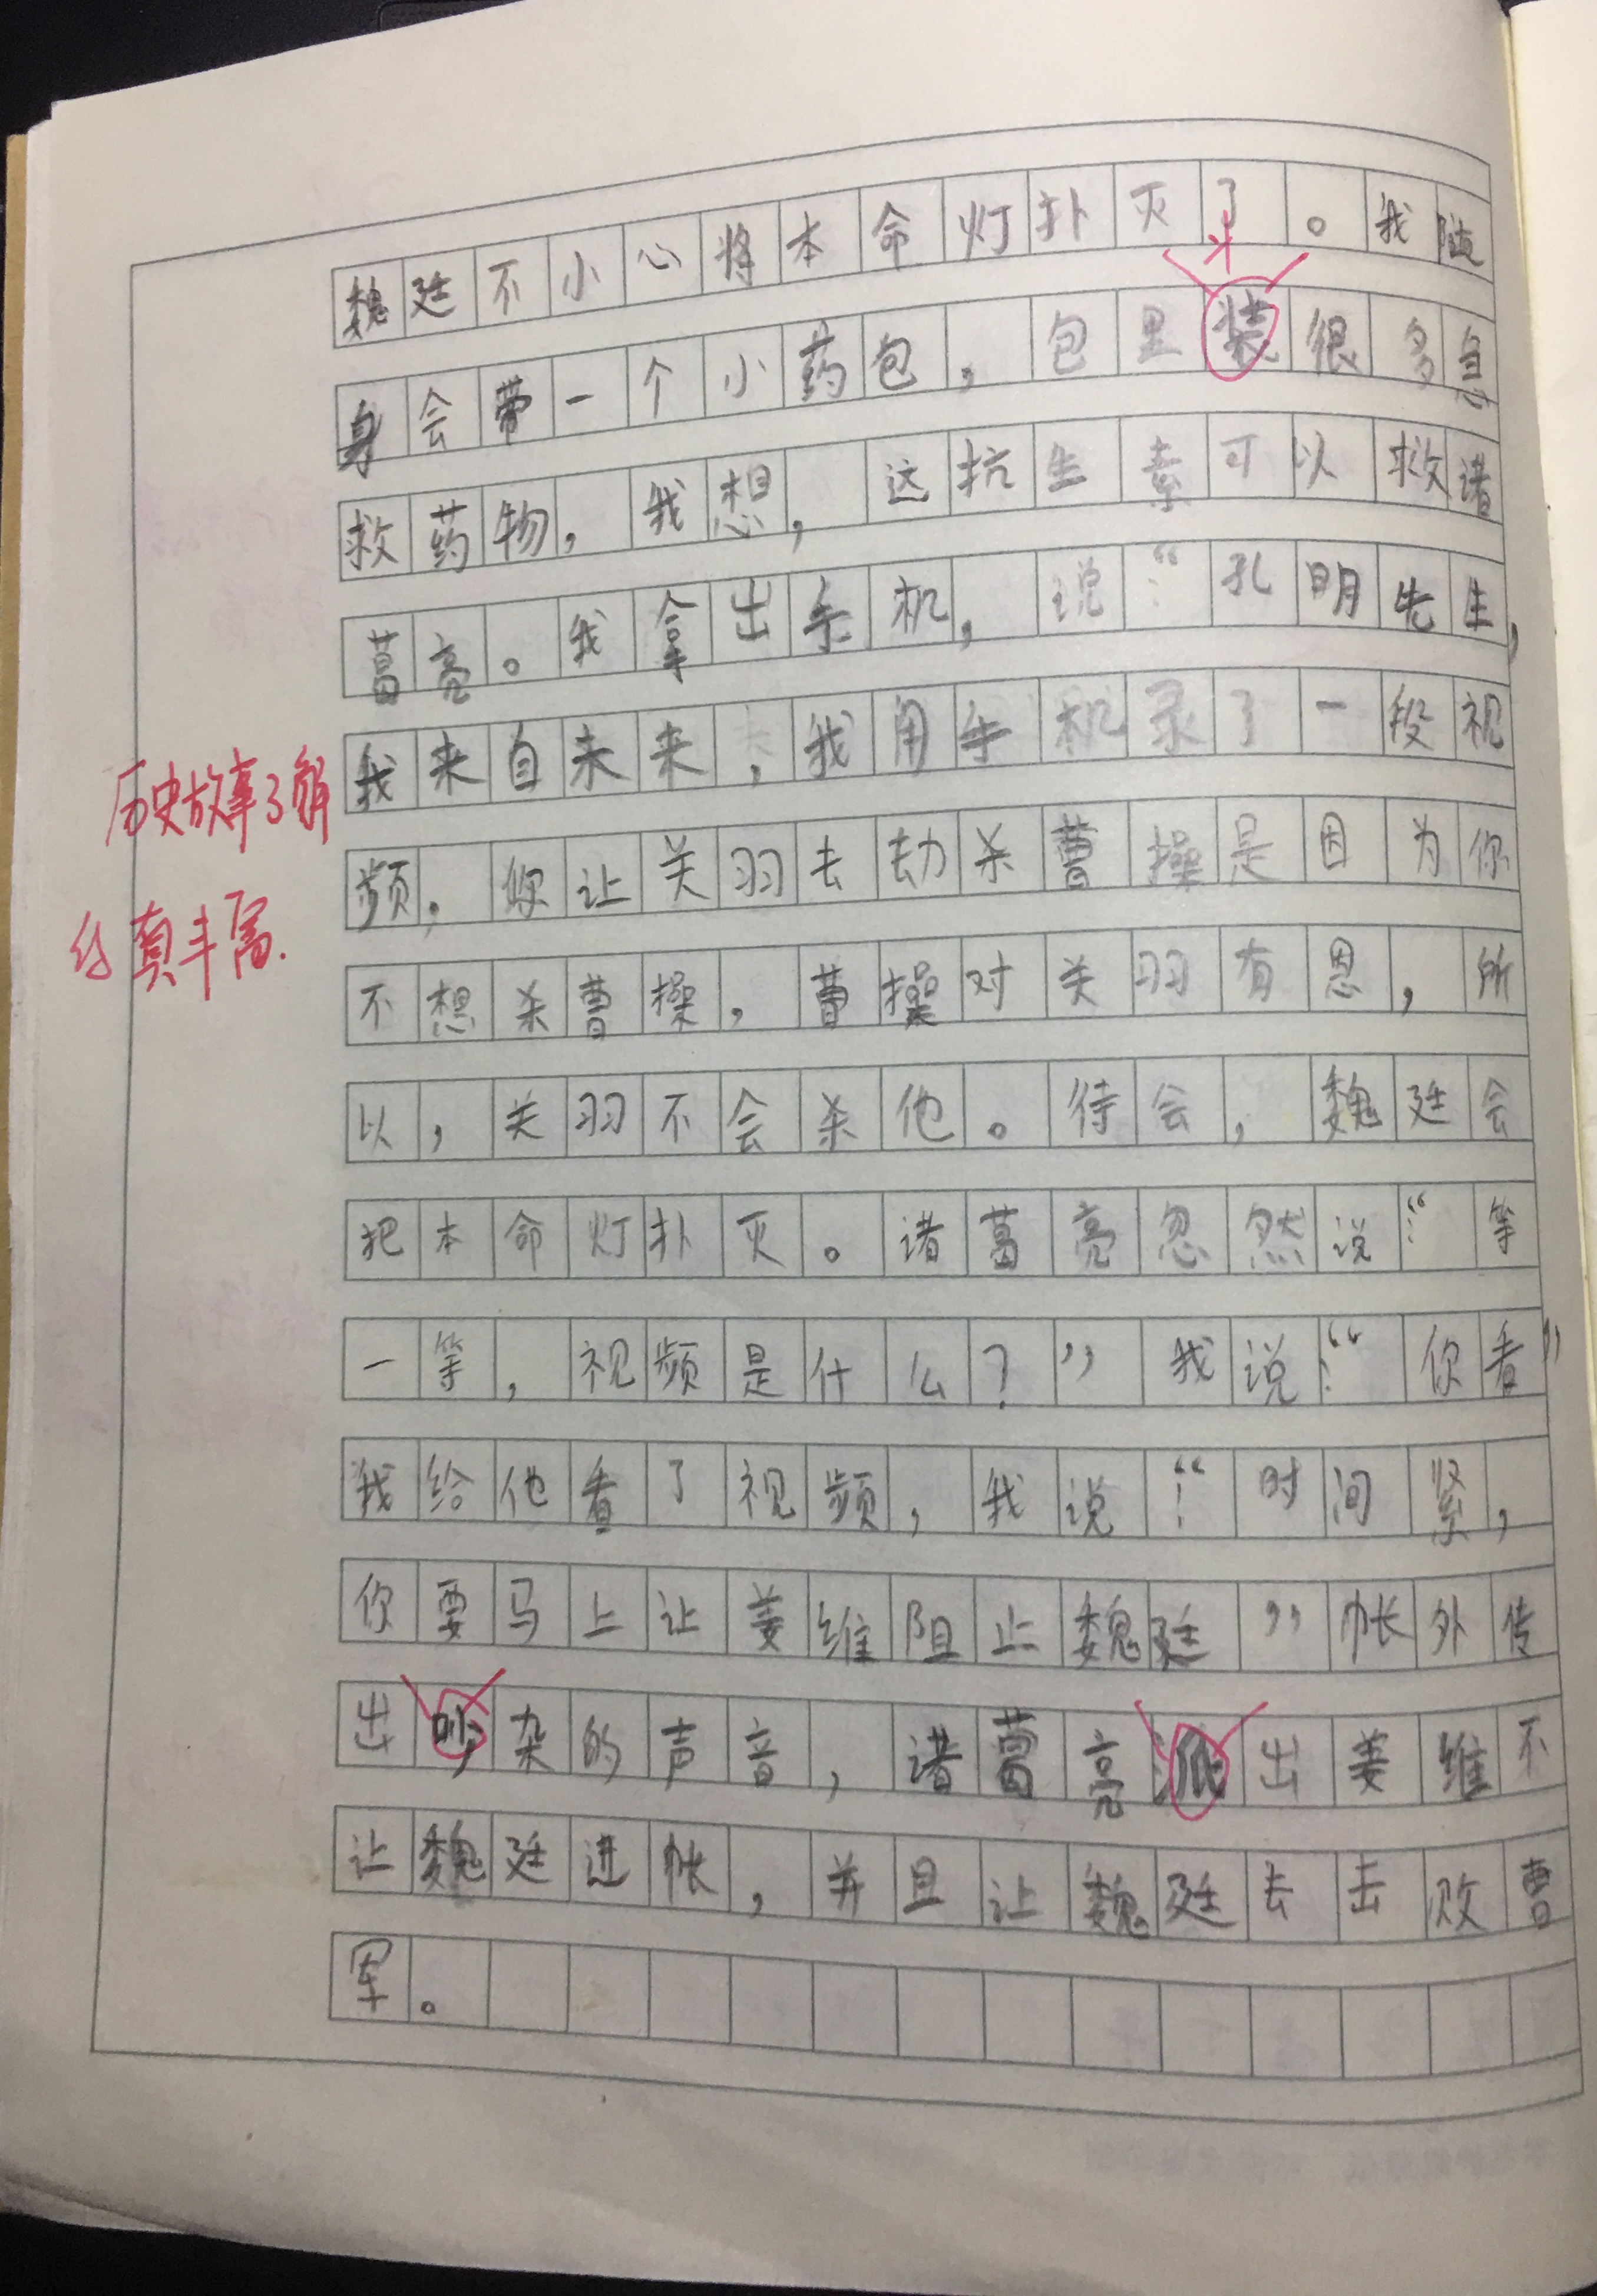 魏廷不小心将本命灯扑灭了。我随
身会带一个小药包，包里装很多急
救药物，我想，这抗生素可以救诸
葛亮。我拿出手机，说：“孔明先生，
我来自未来，我用手机录了一段视
频。您让关羽去劫杀曹操是因为你
不想杀曹操，曹操对关羽有恩，所
以，关羽不会杀他。待会，魏廷会
把本命灯扑灭。诸葛亮忽然说：“等
一等，视频是什么？”我说：“你看”
我给他看了视频，我说：“时间紧，
你要马上让姜维阻止魏廷”帐外传
出吵杂的声音，诸葛亮派出姜维不
让魏廷进帐，并且让魏廷去击败曹
军。
历史故事了解
真丰富.